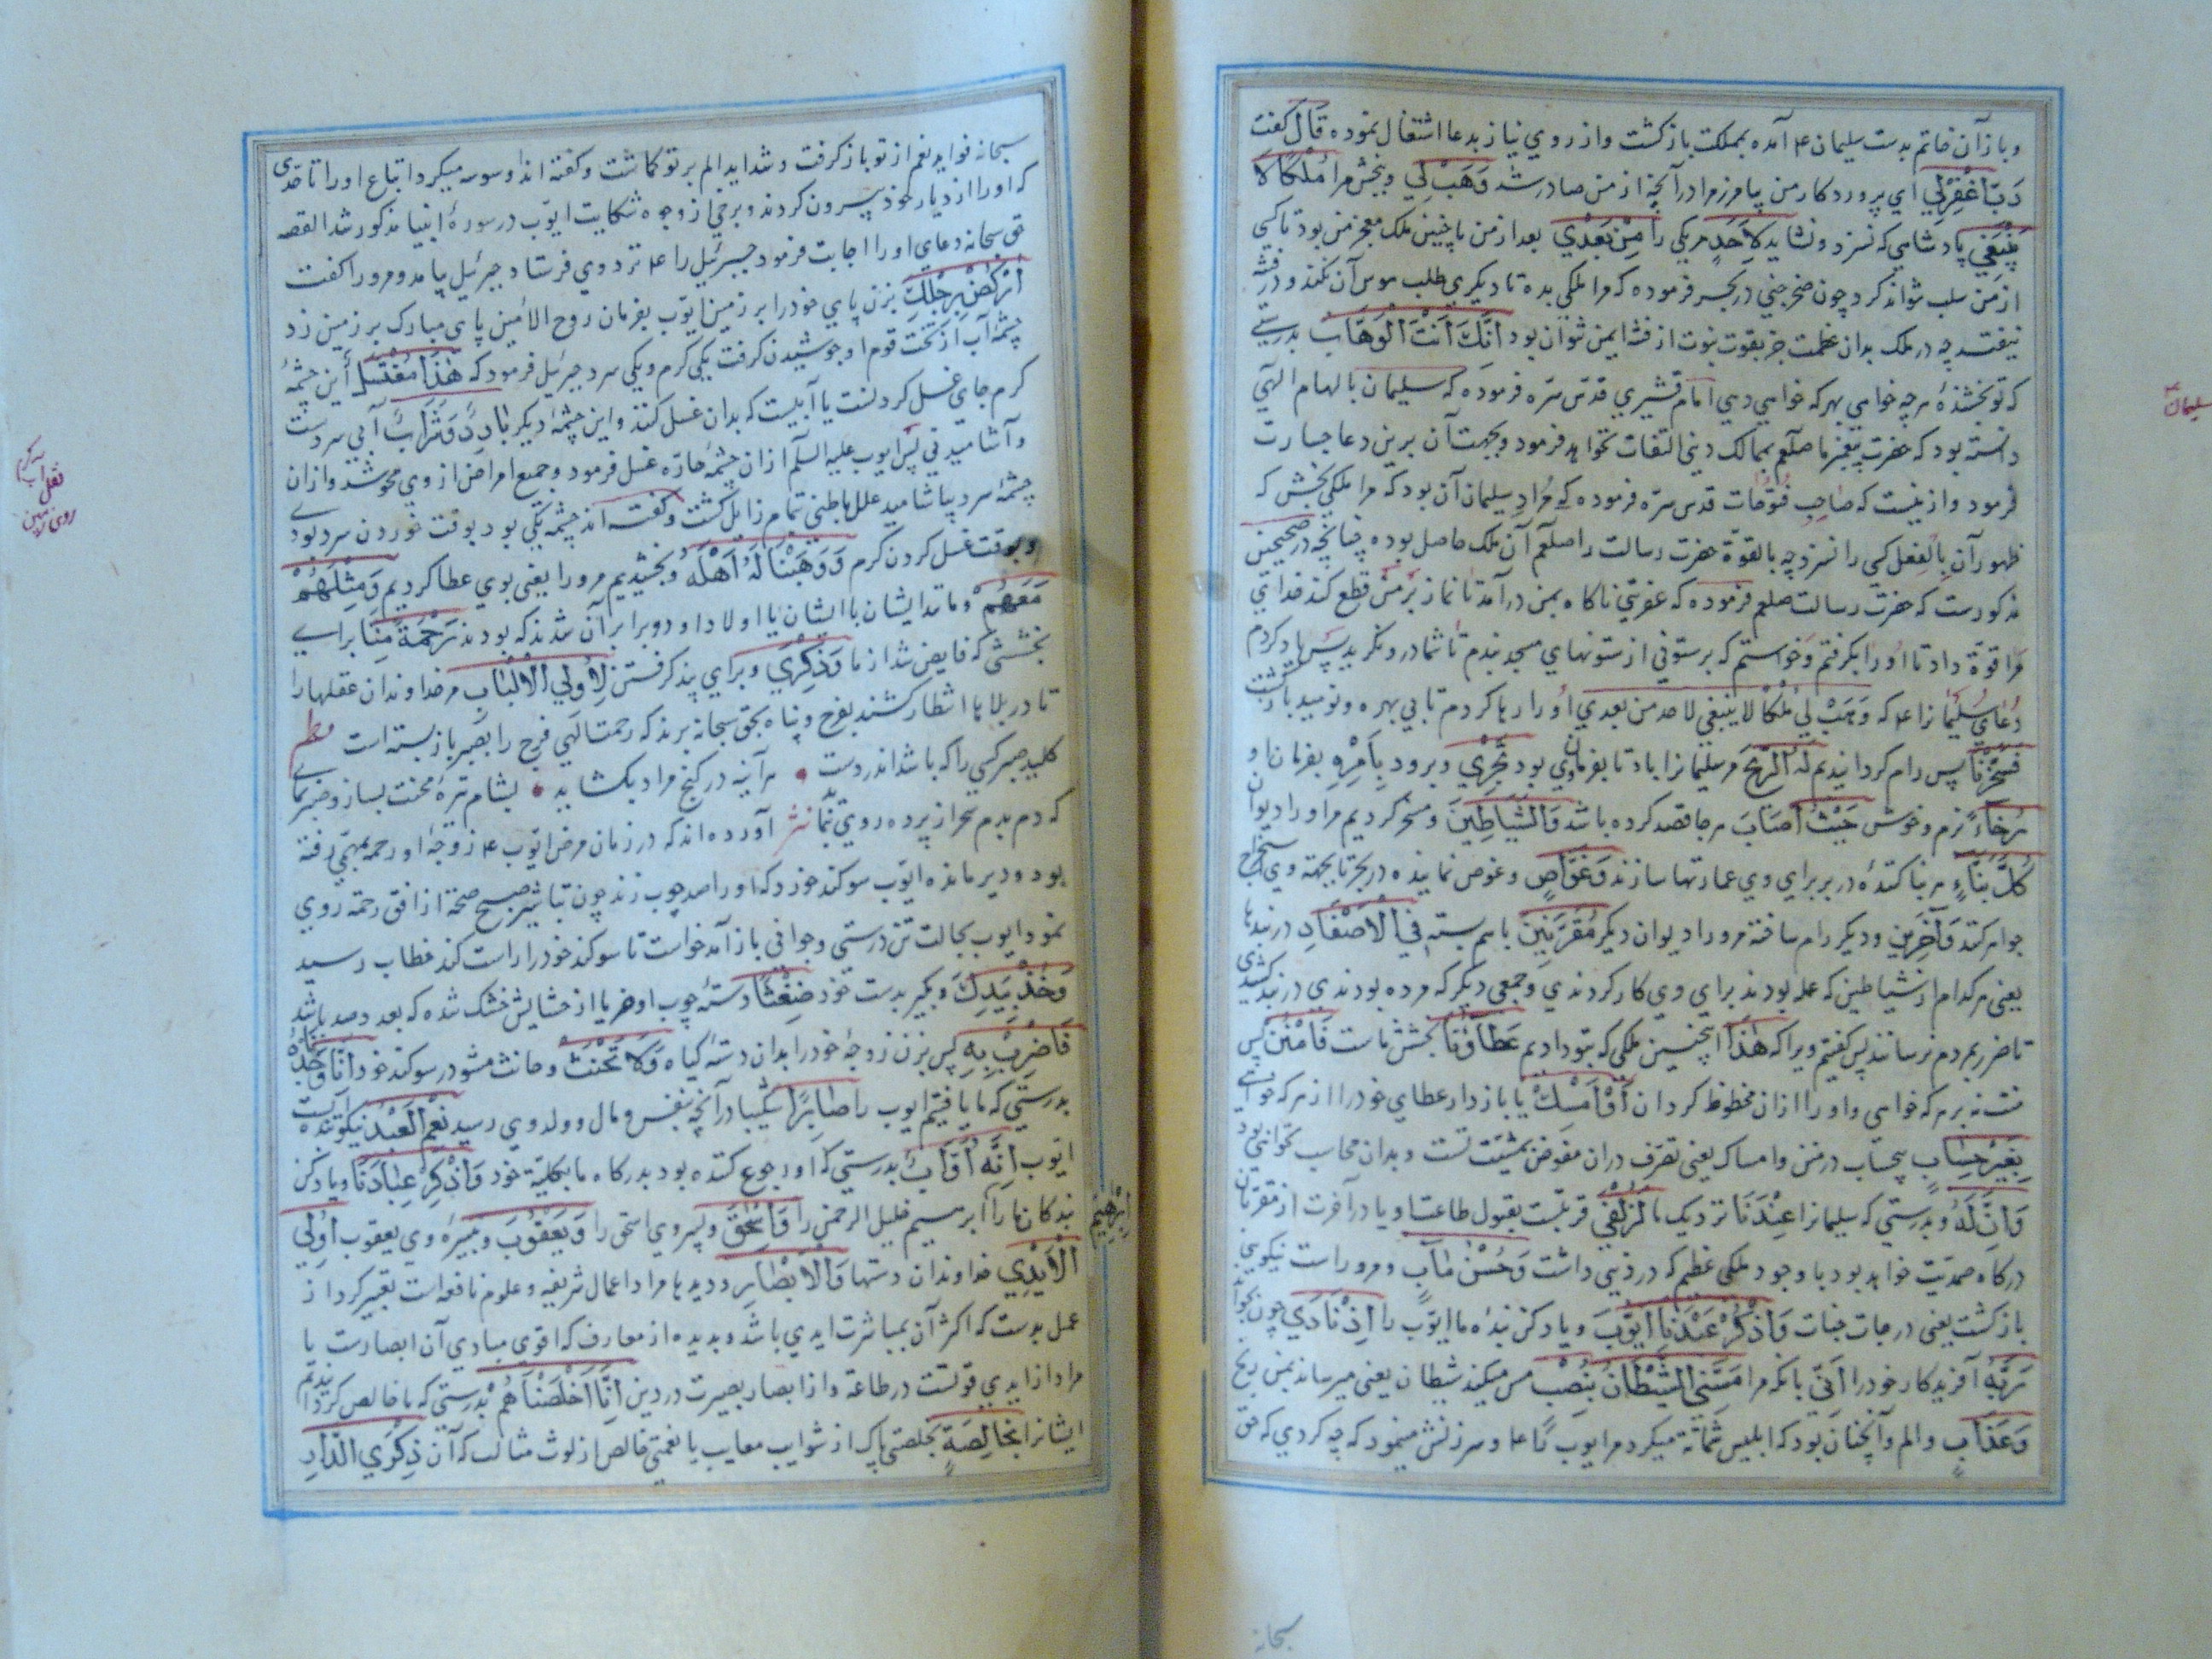 و باز آن خاتم بدست سلیمان ۴ آمده بمملکت بازکشت واز روي نیاز بدعا اشتغال نموده قَالَ کفت
رَبِّ اغْفِرْلِي اي پروردکار من بیامرز مرا در آنچه از من صادر شد وَهَبْ لِي و ببخش مرا مُلْكًا لَا
يَنْبَغِي پادشاهي که نسزد ونشاید لِاَحَدٍ مر یکي را مِنْ بَعْدِي بعد از من یا چنین ملک معجز من بود تا کسي
از من سلب نتواند کرد چون صخر جني در بحر فرموده که مرا ملکي بده تا دیکري طلب موس آن نکند و در فتنه
نیفتد چه در ملک بدان عظمت جز بقوت نبوت از فتنه ایمن نتوان بود اِنَّكَ اَنْتَ الْوَهَّابُ بدرستي
که تو بخشندۀ هر چه خواهي بهر که خواهي دهي امام قشیري قدس سره فرموده که سلیمان بالهام الهي
دانسته بود که حضرت پیغمبر ما صلعم بممالک دنیي التفات نخواهد فرمود و بجهت آن برین دعا جسارت
فرمود و ازینست که صاحب فتوحات قدس سره فرموده که مراد سلیمان آن بود که مرا ملکي بخش که
ظهور آن بالفعل کسي را نسزد چه بالقوة حضرت رسالت را صلعم آن ملک حاصل بوده چنانچه در صحیحین
مذکورست که حضرت رسالت صلعم فرموده که عفریتي ناکاه بمن در آمد تا نماز بر من قطع کند خداي
مرا قوة داد تا او را بکرفتم و خواستم که برستوني از ستونهاي مسجد بندم تا شما درو نکرید پس یاد کردم
دعاي سلیمانرا ۴ که وهب لي ملکا لا ینبغي لاحد من بعدي او را رها کردم تا بي بهره و نومید بازکشت
فَسَخَّرْنَا پس رام کردانیدیم لَهُ الرِّيحَ مر سلیمانرا باد تا بفرمان وي بود تَجْرِي و برود بِاَمْرِهِ بفرمان او
رُخَاءً نرم و خوش حَيْثُ اَصَابَ هر جا قصد کرده باشد وَالشَّيَاطِينَ و مسخر کردیم مر او را دیوان
كُلَّ بَنَّاءٍ هر بنا کنندۀ در بر براي وي عمارتها سازند وَغَوَّاصٍ و غوص نماینده در بحر تا بجهة وي استخراج
جواهر کنند وَآخَرِينَ و دیکر رام ساخته مر او را دیوان دیکر مُقَرَّنِينَ باهم بسته فِي الْاَصْفَادِ در بندها
یعني هر کدام از شیاطین که عمله بودند براي وي کار کردندي و جمعي دیکر که مرده بودندي در بند کشیدي
تا ضرر بمردم نرسانند پس کفتیم ویرا که هٰذَا اینچنین ملکي که بتو دادیم عَطَاؤُنَا بخشش ماست فَامْنُنْ پس
منت نه بر هر که خواهي و او را از ان محظوظ کردان اَوْ اَمْسِكْ یا باز دار عطاي خود را از هر که خواهي
بِغَيْرِ حِسَابٍ بیحساب در منن و امساک یعني تصرف دران مفوض بمشیت تست و بدان محاسب نخواهي بود
وَاِنَّ لَهُ و بدرستي که سلیمانرا عِنْدَنَا نزدیک ما لَزُلْفٰي قربتست بقبول طاعت او یا در آخرت از مقربان
درکاه صمدیت خواهد بود با وجود ملکي عظیم که در دنیي داشت وَحُسْنَ مَآبٍ و مر او راست نیکویي
بازکشت یعني درجات جنات وَاذْكُرْ عَبْدَنَا اَيُّوبَ و یاد کن بندۀ ما ایوب را اِذْ نَادَي چون بخواند
رَبَّهُ آفریدکار خود را اَنِّي بانکه مرا مَسَّنِيَ الشَّيْطَانُ بِنُصْبٍ مس میکند شیطان یعني میرساند بمن رنج
وَعَذَابٍ و الم و آنچنان بود که ابلیس شماتة میکرد مر ایوب را ۴ و سرزنش مینمود که چه کردي که حق
سبحانه
سلیمان
سبحانه فواید نعم از تو باز کرفت و شداید الم بر تو کماشت و کفته اند وسوسه میکرد اتباع او را تا حدي
که او را از دیار خود بیرون کردند و برخي از وجوه شکایت ایوب در سورۀ انبیا مذکور شد القصه
حق سبحانه دعاي او را اجابت فرمود جبرئیل را ۴ نزد وي فرستاد جبرئیل بیامد و مر او را کفت
اُرْكُضْ بِرِجْلِكَ بزن پاي خود را بر زمین ایوب بفرمان روح الامین پاي مبارک بر زمین زد
چشمه آب از تحت قدم او جوشیدن کرفت یکي کرم و یکي سرد جبرئیل فرمود که هٰذَا مُغْتَسَلٌ این چشمۀ
کرم جاي غسل کردنست یا آبیست که بدان غسل کنند و این چشمۀ دیکر بَارِدٌ وَشَرَابٌ آبي سردست
و آشامیدني پس ایوب علیه السلم ازان چشمۀ حاره غسل فرمود و جمیع امراض از وي محو شد و ازان
چشمۀ سرد بیاشامید علل باطني تمام زایل کشت و کفته اند چشمه یکي بود بوقت خوردن سرد بودي
و بوقت غسل کردن کرم وَوَهَبْنَا لَهُ اَهْلَهُ و بخشیدیم مر او را یعني بوي عطا کردیم وَمِثْلَهُمْ
مَعَهُمْ و مانند ایشان با ایشان یا اولاد او دو برابر آن شدند که بودند رَحْمَةً مِنَّا براي
بخششي که فایض شد از ما وَذِكْرَي و براي پند کرفتن لِاُولِي الْاَلْبَابِ مر خداوندان عقلها را
تا در بلایا انتظار کشند بفرح و پناه بحق سبحانه برند که رحمت الهي فرح را بصبر باز بسته است نظم
کلید صبر کسي را که باشد اندر دست • هر آینه در کنج مراد بکشاید • بشام تیرۀ محنت بساز و صبر نماي
که دم بدم سحر از پرده روي بنماید نثر آورده اند که در زمان مرض ایوب ۴ زوجۀ او رحمه بمهمي رفته
بود و دیر مانده ایوب سوکند خورد که او را صد چوب زند چون تباشیر صبح صحة از افق رحمة روي
نمود ایوب بحالت تن درستي و جواني باز آمد خواست تا سوکند خود را راست کند خطاب رسید
وَخُذْ بِيَدِكَ و بکیر بدست خود ضِغْثًا دستۀ چوب او خریا از حشایش خشک شده که بعدد صد باشد
فَاضْرِبْ بِهِ پس بزن زوجۀ خود را بدان دستۀ کیاه وَلَا تَحْنَثْ و حانث مشو در سوکند خود اِنَّا وَجَدْنَاهُ
بدرستي که ما یافتیم ایوب را صَابِرًا شکیبا در آنچه بنفس و مال و ولد وي رسید نِعْمَ الْعَبْدُ نیکو بنده ایست
ایوب اِنَّهُ اَوَّابٌ بدرستي که او رجوع کننده بود بدرکاه ما بکلیۀ خود وَاذْكُرْ عِبَادَنَا و یاد کن
بندکان ما را ابرهیم خلیل الرحمن را وَاِسْحٰقَ و پسر وي اسحق را وَيَعْقُوبَ و نبیرۀ وي یعقوب اُولِي
اِبْرٰهِيمَ
الْاَيْدِي خداوندان دستها وَالْاَبْصَارِ و دیدها مراد اعمال شریفه و علوم نافعه است تعبیر کرد از
عمل بدست که اکثر آن بمباشرت ایدي باشد و بدیده از معارف که اقوي مبادي آن ابصارست یا
مراد از ایدي قوتست در طاعة و از ابصار بصیرت در دین اِنَّا اَخْلَصْنَاهُمْ بدرستي که ما خالص کردانیدیم
ایشانرا بِخَالِصَةٍ بخلصتي پاک از شوایب معایب یا نعمتي خالص از لوث مثالب که آن ذِكْرَي الدَّارِ